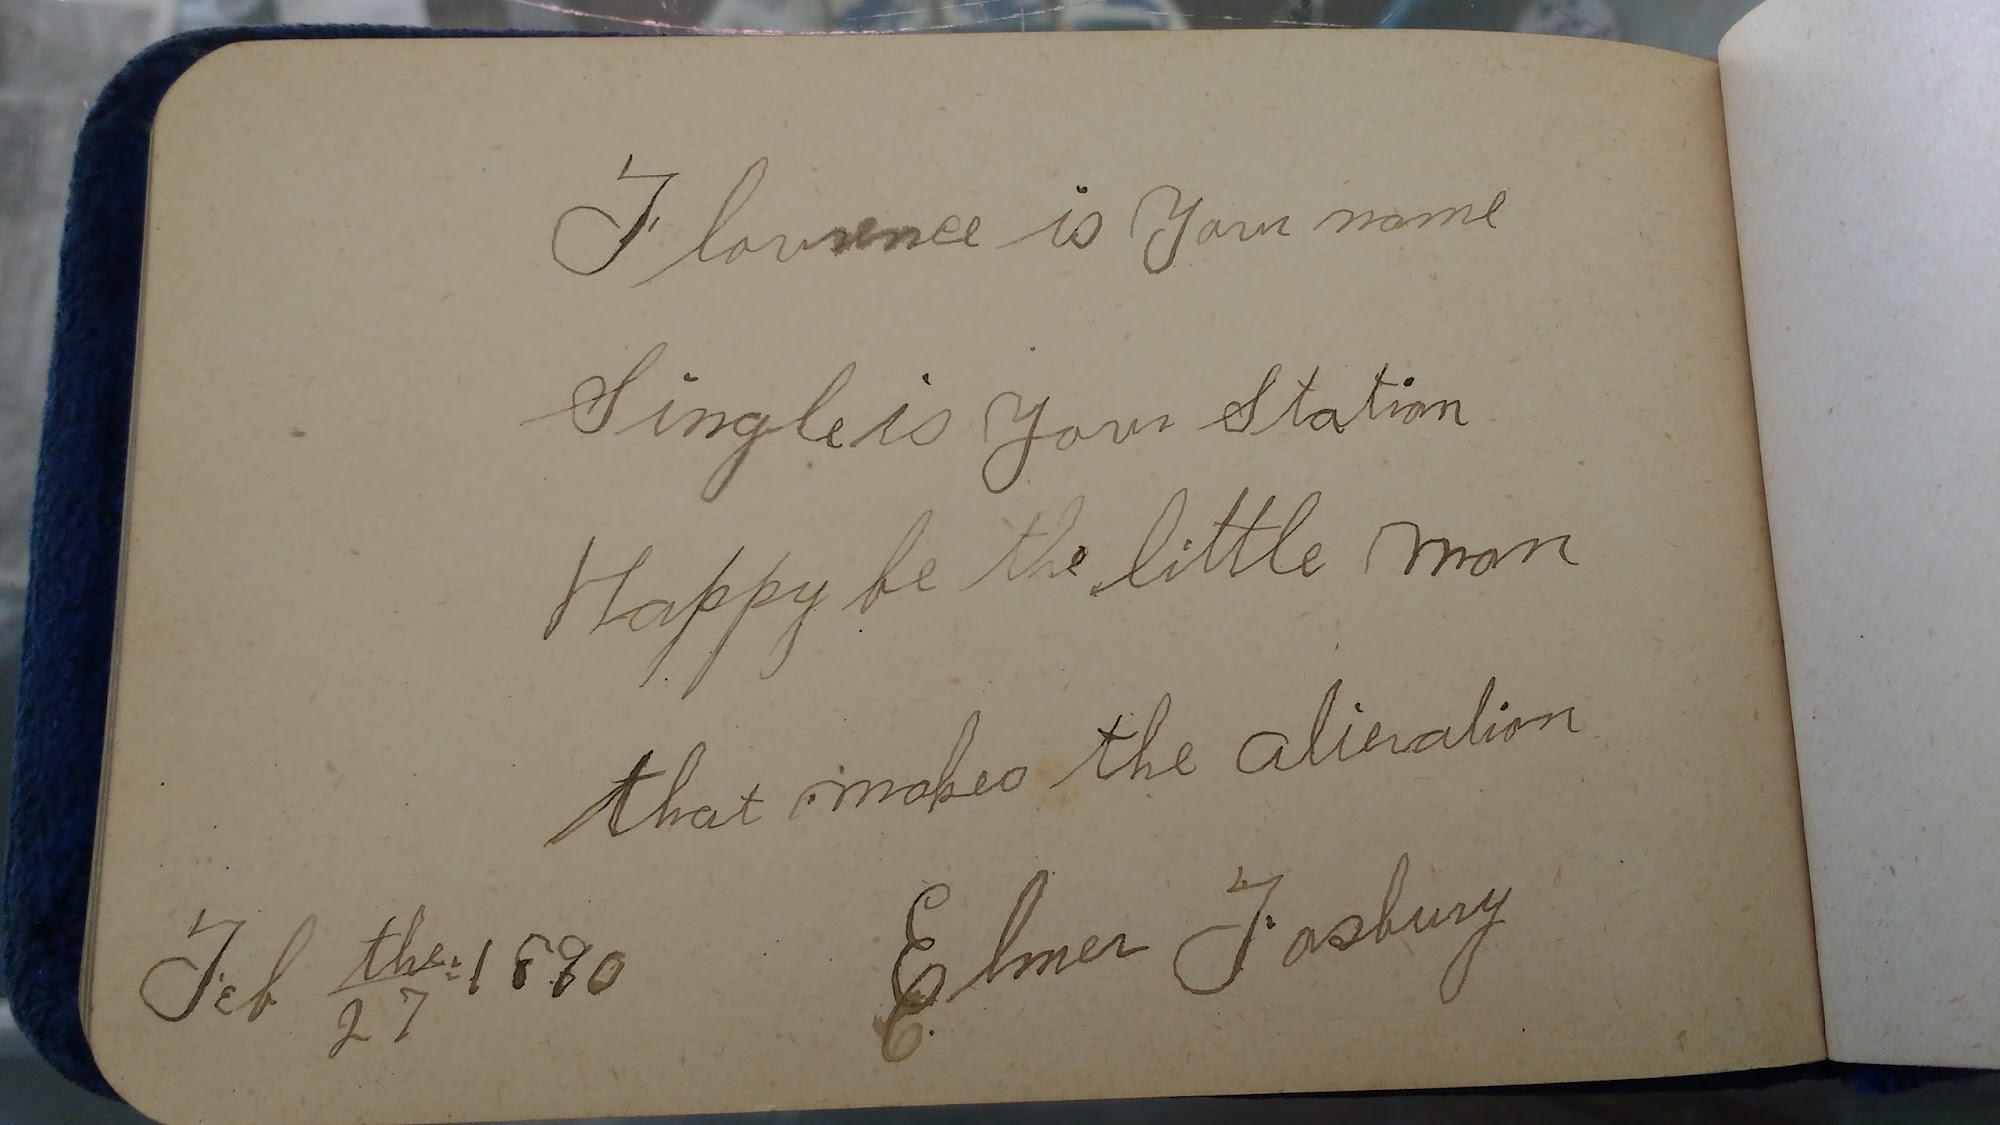 Florence is Your name
Single is Your Station
Happy be the little man
that makes the alieration
Feb 27 the: 1890
Elmer Fosbury